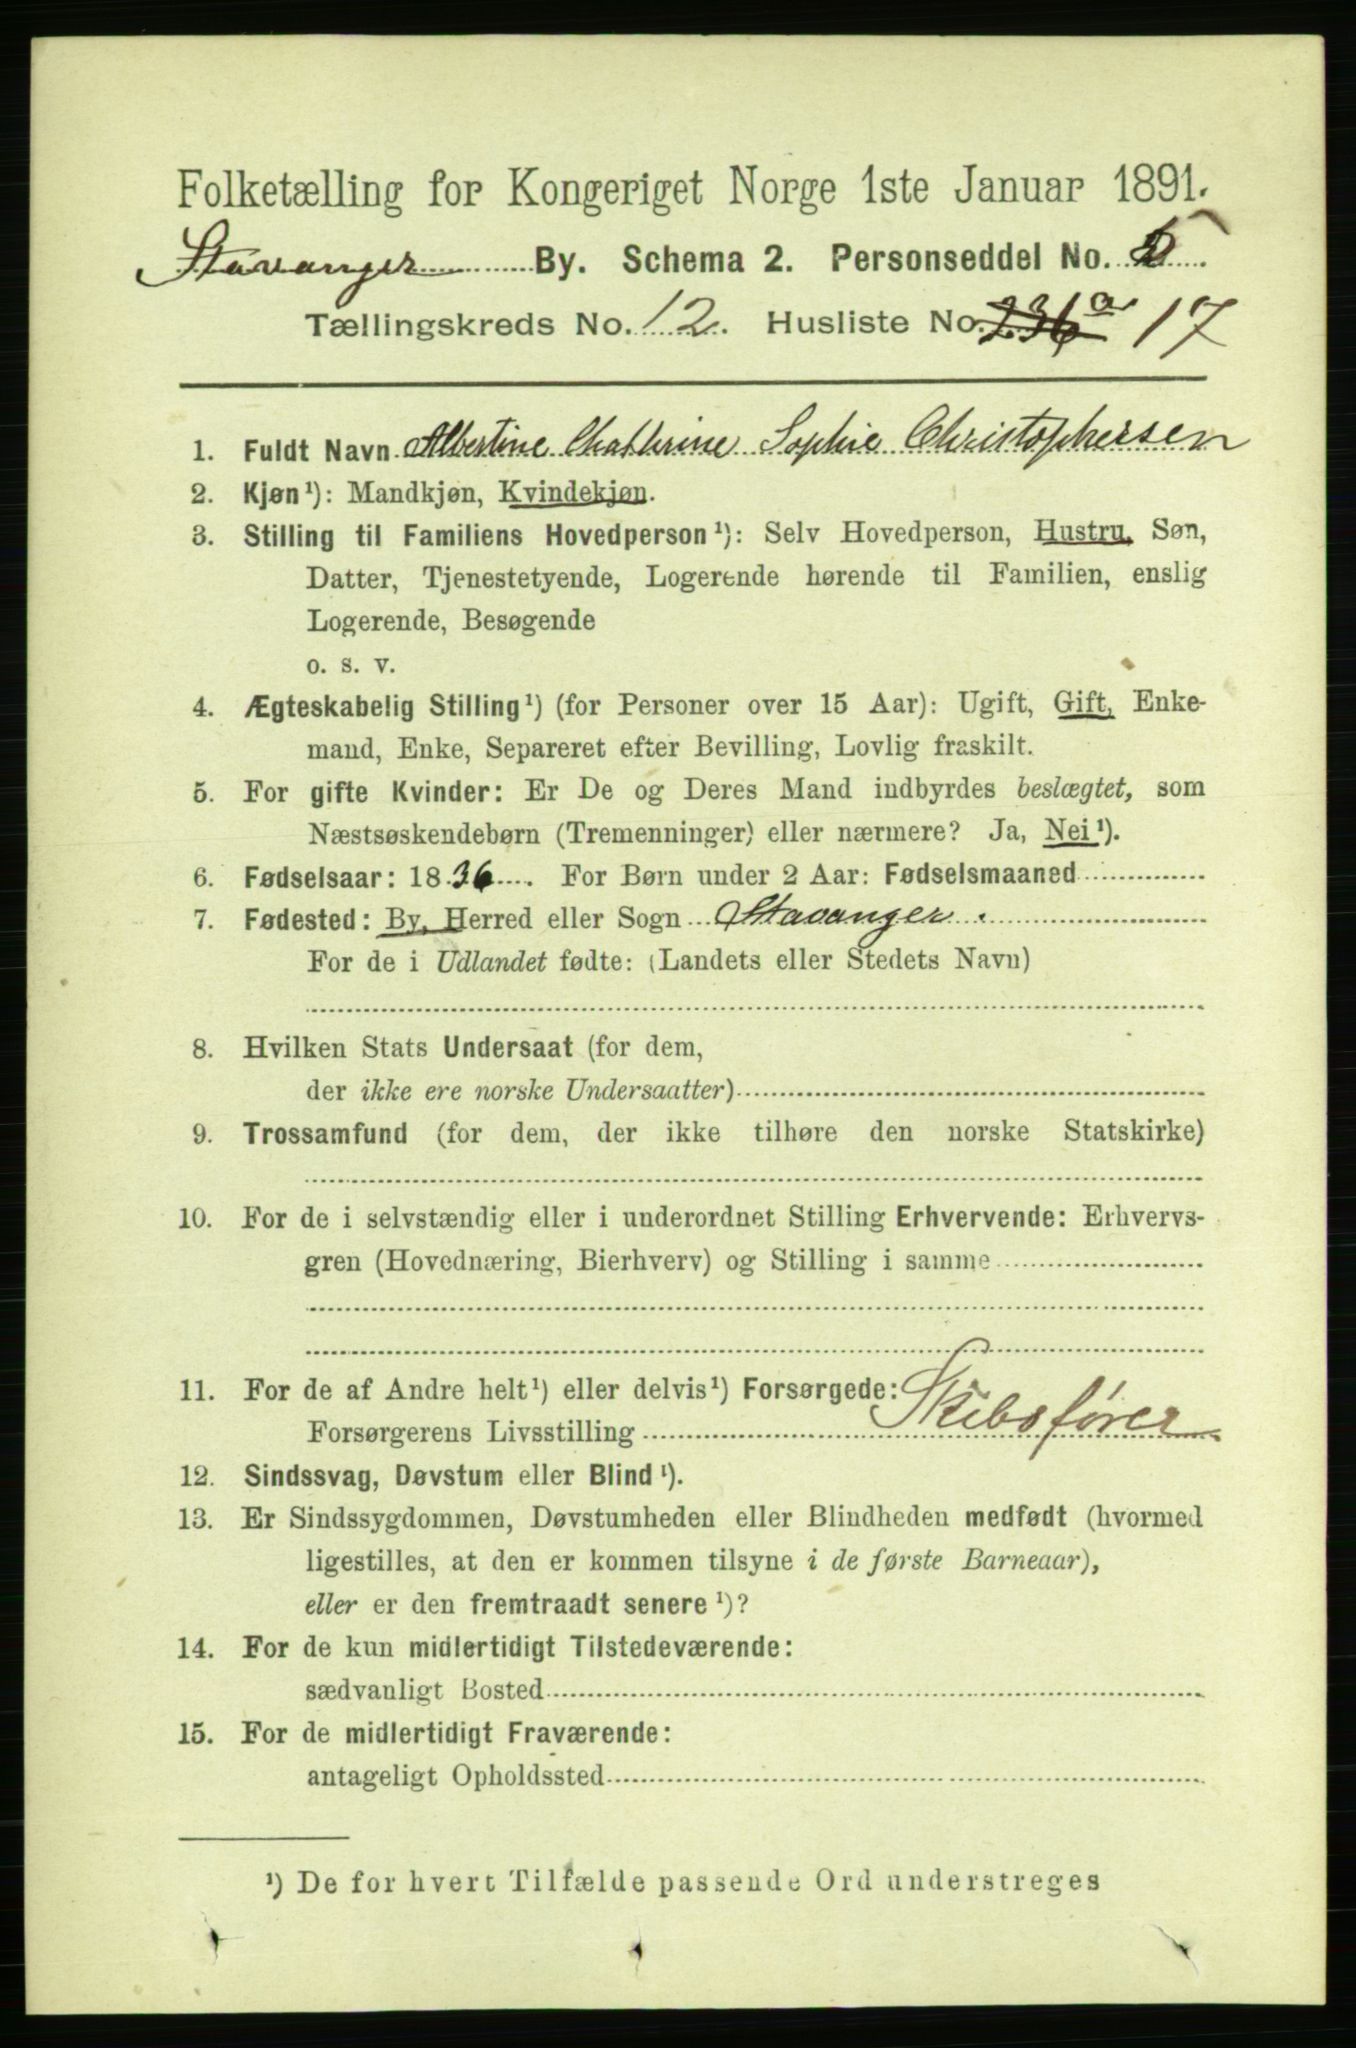 Folketælling for Kongeriget Norge 1ste Januar 1891.
Stavanger By. Schema 2. Personseddel No.
Tællingskreds No. 12. Husliste No. 236a 17
1. Fuldt Navn Albertine Chathrine Sophie Christophersen
2. Kjøn¹): Mandkjøn, Kvindekjøn.
3. Stilling til Familiens Hovedperson¹): Selv Hovedperson, Hustru, Søn,
Datter, Tjenestetyende, Logerende hørende til Familien, enslig
Logerende, Besøgende
o. s. v.
4. Ægteskabelig Stilling¹) (for Personer over 15 Aar): Ugift, Gift, Enke-
mand, Enke, Separeret efter Bevilling, Lovlig fraskilt.
5. For gifte Kvinder: Er De og Deres Mand indbyrdes beslægtet, som
Næstsøskendebørn (Tremenninger) eller nærmere? Ja, Nei¹).
6. Fødselsaar: 1836. For Børn under 2 Aar: Fødselsmaaned
7. Fødested: By, Herred eller Sogn Stavanger.
For de i Udlandet fødte: (Landets eller Stedets Navn)
8. Hvilken Stats Undersaat (for dem,
der ikke ere norske Undersaatter)
9. Trossamfund (for dem, der ikke tilhøre den norske Statskirke)
10. For de i selvstændig eller i underordnet Stilling Erhvervende: Erhvervs-
gren (Hovednæring, Bierhverv) og Stilling i samme
11. For de af Andre helt¹) eller delvis¹) Forsørgede:
Forsørgerens Livsstilling Skibsfører
12. Sindssvag, Døvstum eller Blind¹).
13. Er Sindssygdommen, Døvstumheden eller Blindheden medfødt (hvormed
ligestilles, at den er kommen tilsyne i de første Barneaar),
eller er den fremtraadt senere¹)?
14. For de kun midlertidigt Tilstedeværende:
sædvanligt Bosted
15. For de midlertidigt Fraværende:
antageligt Opholdssted
¹) De for hvert Tilfælde passende Ord understreges